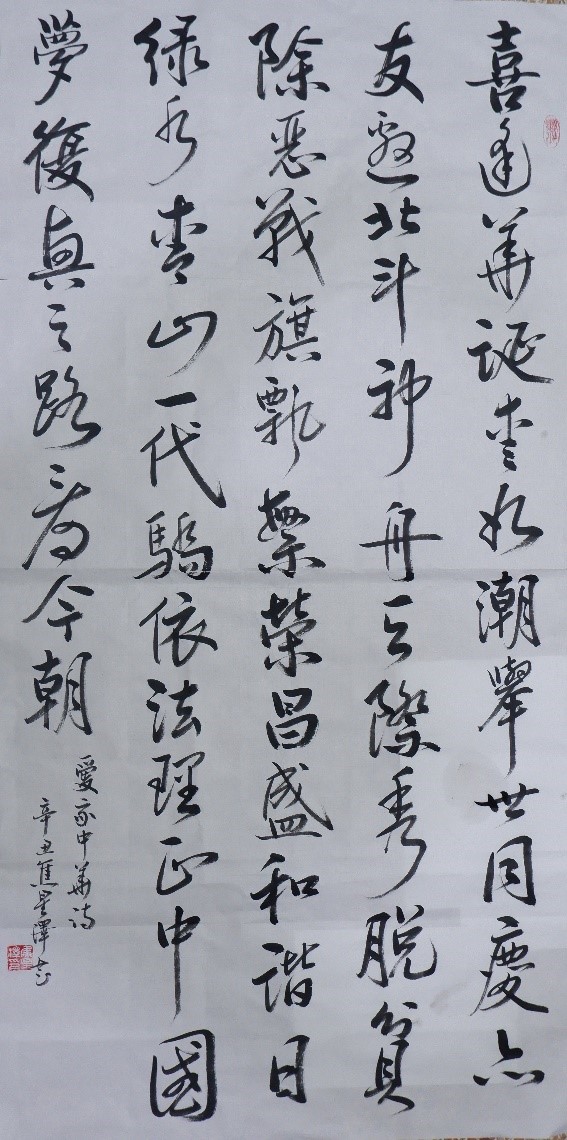 喜逢華誕如潮舉世同慶亦
友邀北斗神舟天際秀脱貧
除惡戰旗飄繁榮昌盛和諧日
绿水青山一代驕依法理正中國
夢復興之路看今朝
愛我中華詩
辛丑焦星澤